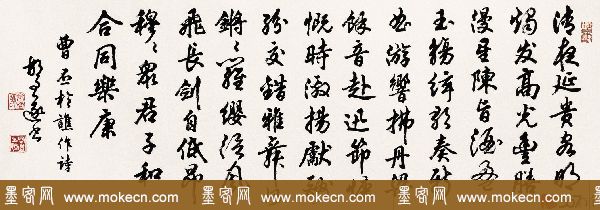 清夜延貴客明
燭发高光豐膳
漫星陳旨酒盈
玉觴弦歌奏新
曲游響拂丹梁
餘音赴迅節慷
慨時激揚獻酬
紛交錯雅舞何
鏘鏘羅纓從風
飛長劍自低昂
穆穆眾君子和
合同樂康
曹丕於譙作詩
墨客网 www.mokecn.com 墨客网 www.mokecn.com 墨客网 www.mokecn.com